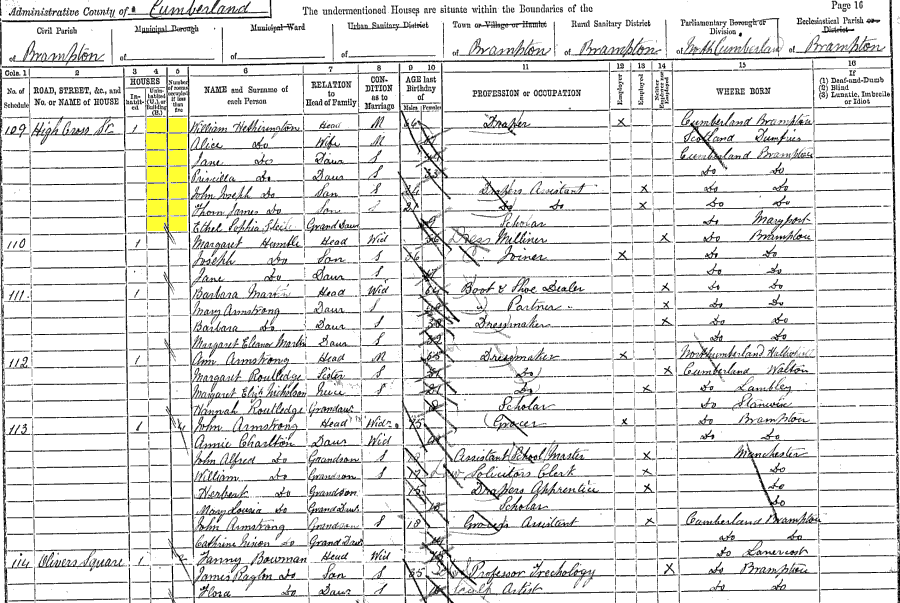 Administrative County of Cumberland The undermentioned Houses are situate within the Boundaries of the Page 16
Civil Parish Municipal Borough Municipal Ward Urban Sanitary District Town or Village or Hamlet Rural Sanitary District Parliamentary Borough or Division Ecclesiastical Parish or District
of Brampton of of of of Brampton of Brampton of North Cumberland of Brampton
Cols. 1 2 3 4 5 6 7 8 9 10 11 12 13 14 15 16
No. of Schedule ROAD, STREET, &c., and No. or NAME of HOUSE HOUSES Inhabited Uninhabited (U.), or Building (B.) Number of rooms occupied if less than five NAME and Surname of each Person RELATION to Head of Family CONDITION as to Marriage AGE last Birthday of Males Females PROFESSION or OCCUPATION Employer Employed Neither Employer nor Employed WHERE BORN If (1) Deaf-and-Dumb (2) Blind (3) Lunatic, Imbecile or Idiot
109 High Cross St. 1 William Hetherington Head M Draper X Cumberland Brampton
Alice Do Wife M Scotland Dumfries
Jane Do Daur S Cumberland Brampton
Priscilla Do Daur S Do Do
John Joseph Do Son S 24 Drapers Assistant X Do Do
Thom James Do Son S 21 Do Do X Do Do
Ethel Sophia Grand Daur Scholar Do Maryport
110 1 Margaret Humble Head Wid Dress Milliner X Do Brampton
Joseph Do Son S 36 Joiner X Do Do
Jane Do Daur S Do Do
111 1 Barbara Martin Head Wid 64 Boot & Shoe Dealer X Do Do
Mary Armstrong Daur Partner X Do Do
Barbara Do Daur S Dressmaker X Do Do
Margaret Eleanor Martin Daur S Do Do
112 1 Ann Armstrong Head M Dressmaker X Northumberland
Margaret Routledge Sister S Do X Cumberland Walton
Margaret Elizh Nicholson Niece S Do X Do Lambley
Hannah Routledge Grandaur Scholar Do Stanwix
113 1 4 John Armstrong Head Widr. 75 Grocer X Do Brampton
Annie Charlton Daur Wid Do Do
John Alfred Do Grandson S Assistant School Master X Manchester
William Do Grandson S 17 Solicitors Clerk X Do
Herbert Do Grandson 15 Drapers Apprentice X Do
Mary Louisa Do Grand Daur Scholar Do
John Armstrong Grandson S 18 Grocers Assistant X Cumberland Brampton
Cathrine Nixon Do Grand Daur Do Do
114 Olivers Square 1 2 Fanny Bowman Head Wid Do Lanercost
James Raglon Do Son S 35 Professor Trechology X Do Brampton
Flora Do Daur S Scalp Artist Do Do